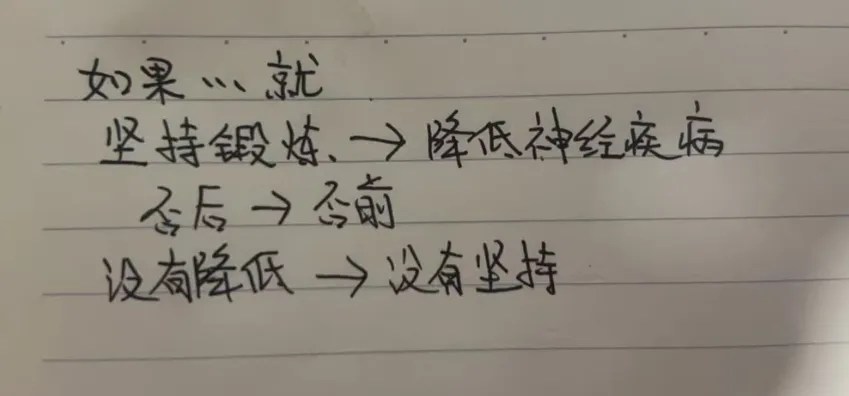 如果…就
坚持锻炼、→降低神经疾病
否后→否前
没有降低→没有坚持